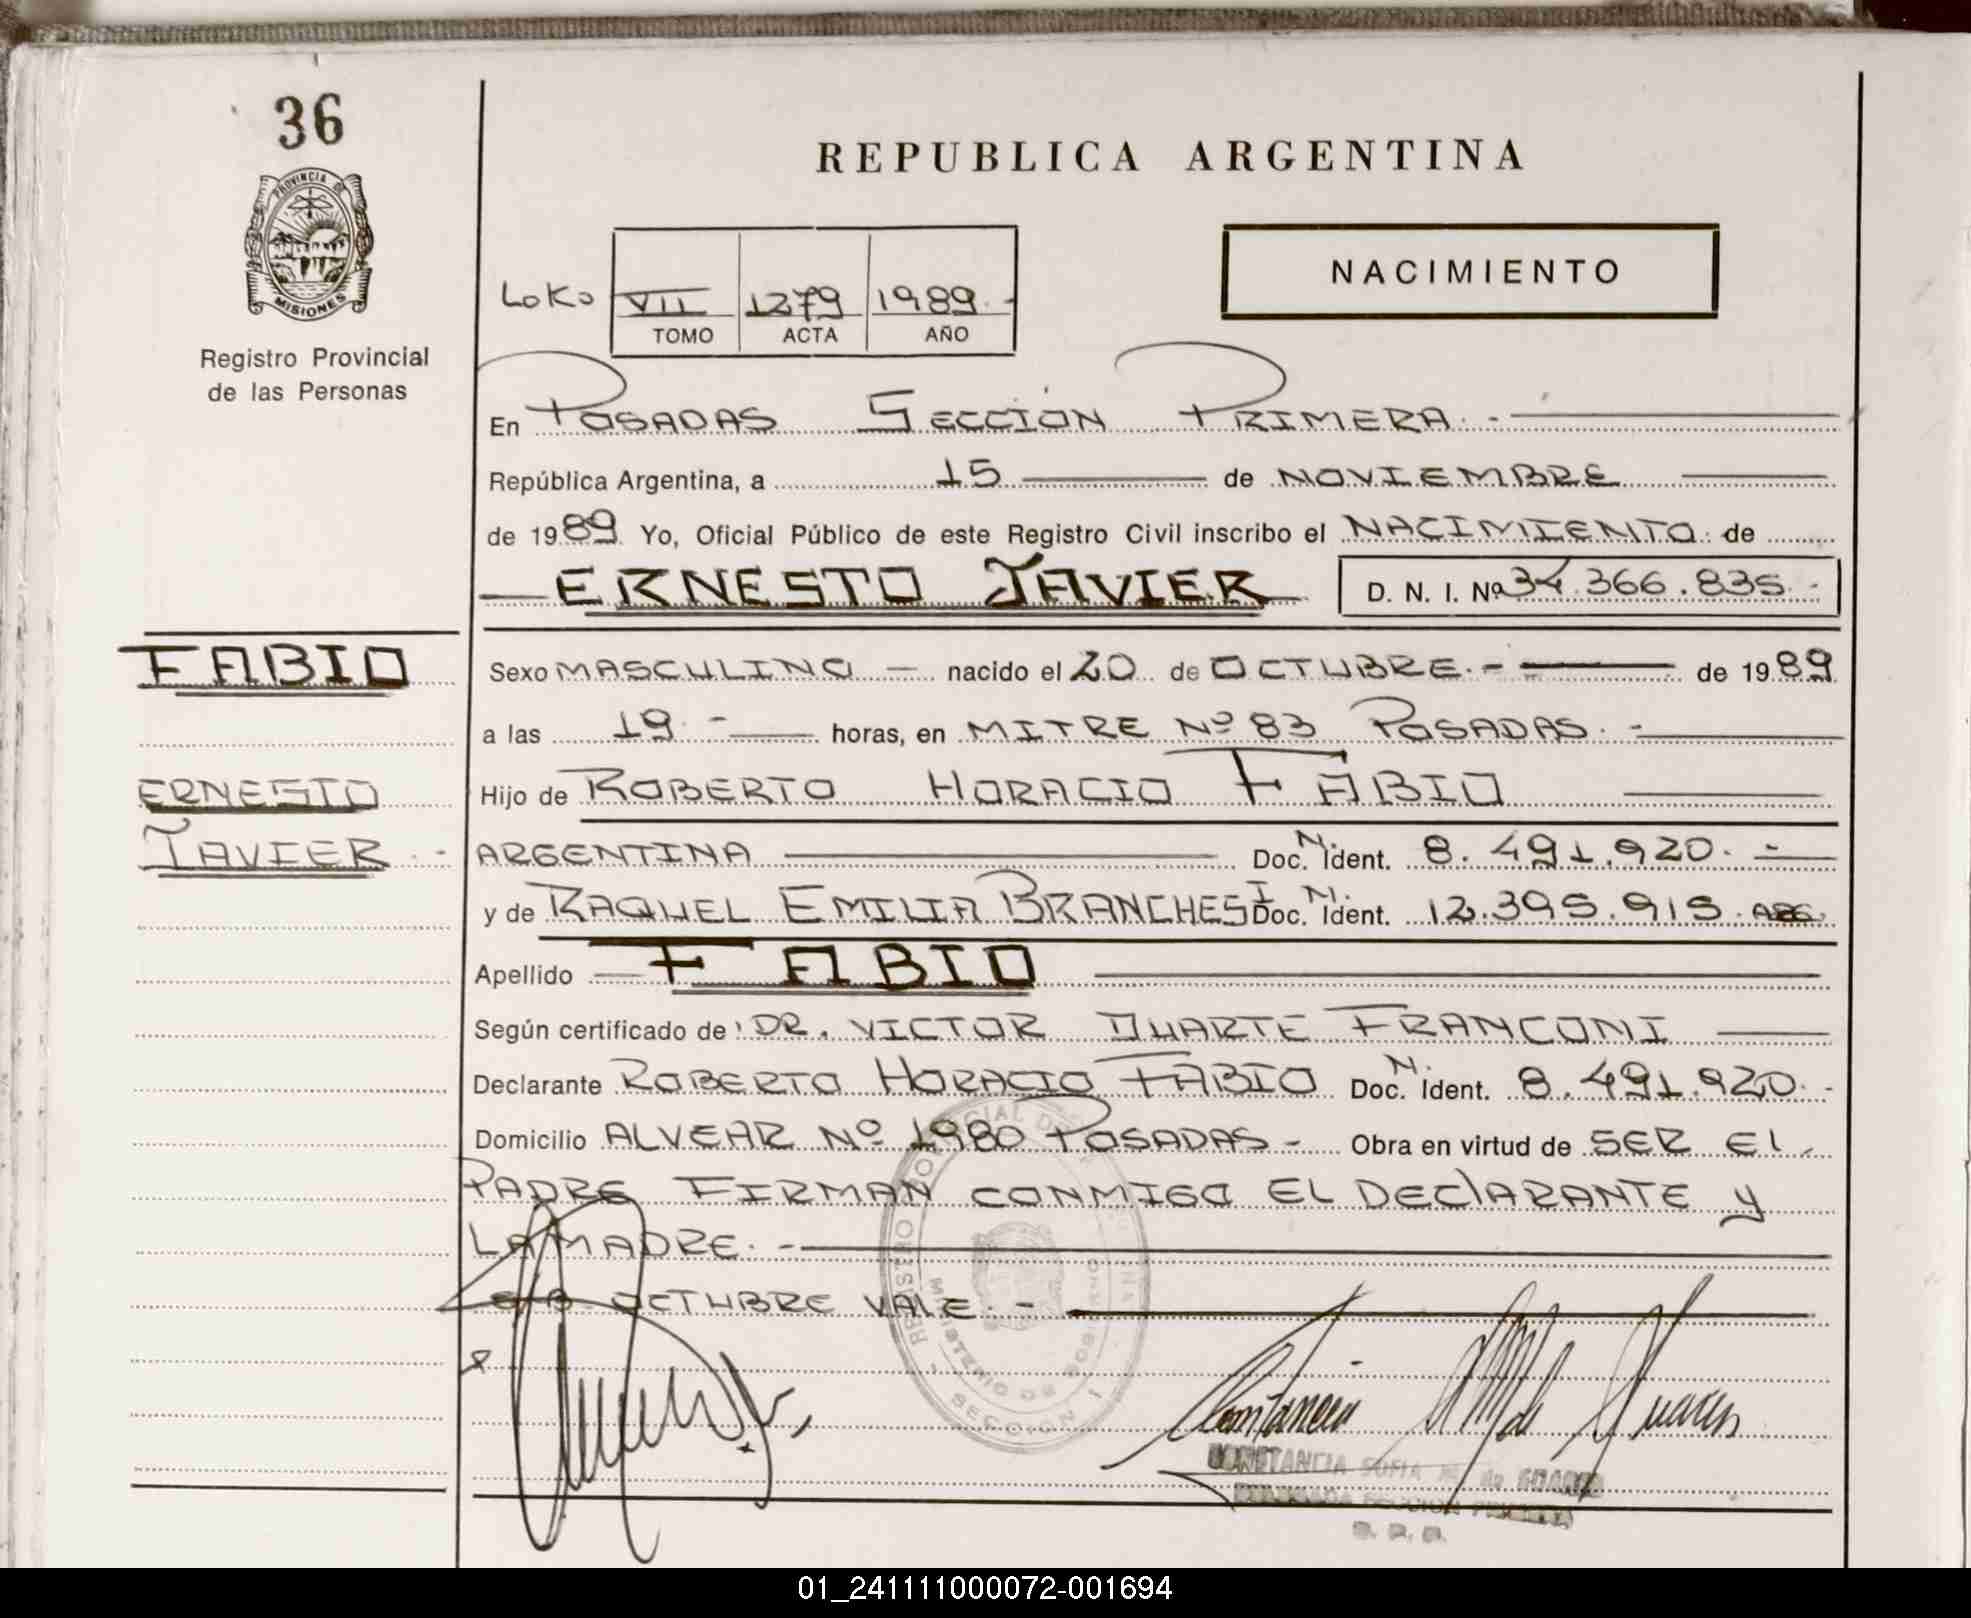 36
REPUBLICA ARGENTINA
PROVINCIA DE
MISIONES
Registro Provincial
de las Personas
NACIMIENTO
LOKO VII 1279 1989.-
TOMO ACTA AÑO
En POSADAS SECCION PRIMERA.-
República Argentina, a 15 de NOVIEMBRE
de 1989 Yo, Oficial Público de este Registro Civil inscribo el NACIMIENTO de
ERNESTO JAVIER D. N. I. Nº 34.366.835.-
FABIO
Sexo MASCULINO - nacido el 20 de OCTUBRE.- de 1989
a las 19.- horas, en MITRE Nº 83 POSADAS.-
ERNESTO
Hijo de ROBERTO HORACIO FABIO
JAVIER.-
ARGENTINA Doc. N. Ident. 8.491.920.-
y de RAQUEL EMILIA BRANCHESI Doc. N. Ident. 12.395.915. ARG.
Apellido FABIO
Según certificado de DR. VICTOR DUARTE FRANCONI
Declarante ROBERTO HORACIO FABIO Doc. N. Ident. 8.491.920.-
Domicilio ALVEAR Nº 1980 POSADAS- Obra en virtud de SER EL
PADRE FIRMAN CONMIGO EL DEClARANTE y
LA MADRE.-
OCTUBRE VALE.-
REGISTRO PROVINCIAL DE
MINISTERIO DE GOBIERNO
SECCION 1
CONSTANCIA SOFIA M. de SUAREZ
SECCION PRIMERA
01_241111000072-001694